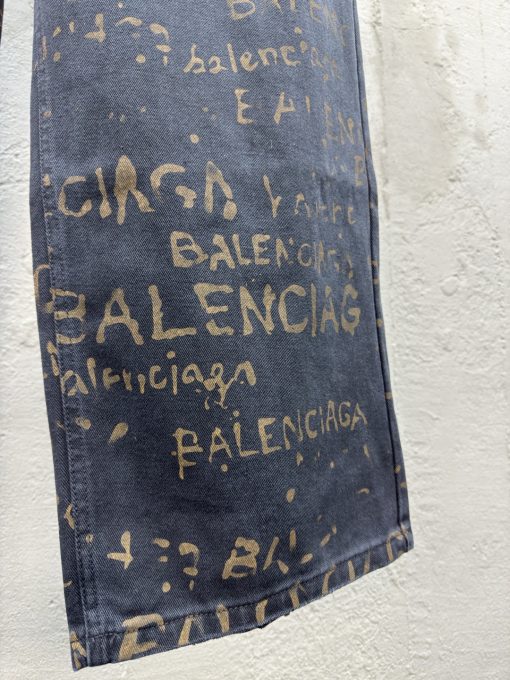 BALEN
balenciaga
BALEN
CIAGA
BALENCIAGA
BALENCIAG
alenciaga
BALENCIAGA
BAL
BALENCIAG